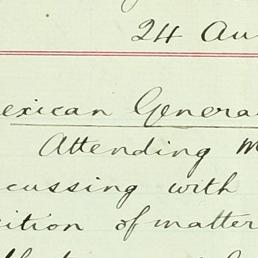 24 Au
exican Genera
Attending M
cussing with
ition of matter